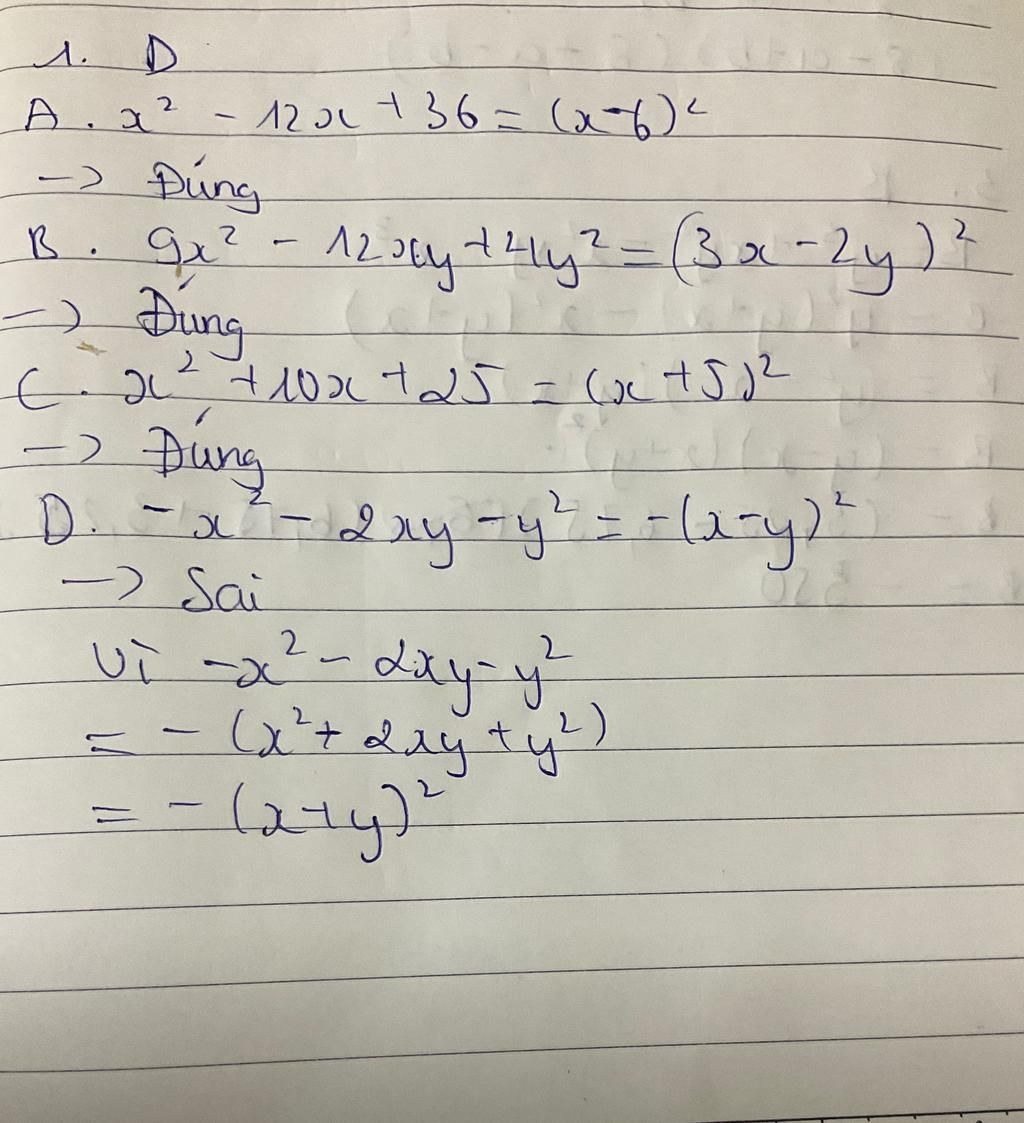 1. D
A. x² - 12x + 36 = (x-6)²
-> Đúng
B. 9x² - 12xy + 4y² = (3x - 2y)²
-> Đúng
C. x² + 10x + 25 = (x + 5)²
-> Đúng
D. -x² - 2xy - y² = -(x-y)²
-> Sai
Vì -x² - 2xy - y²
= - (x² + 2xy + y²)
= - (x+y)²